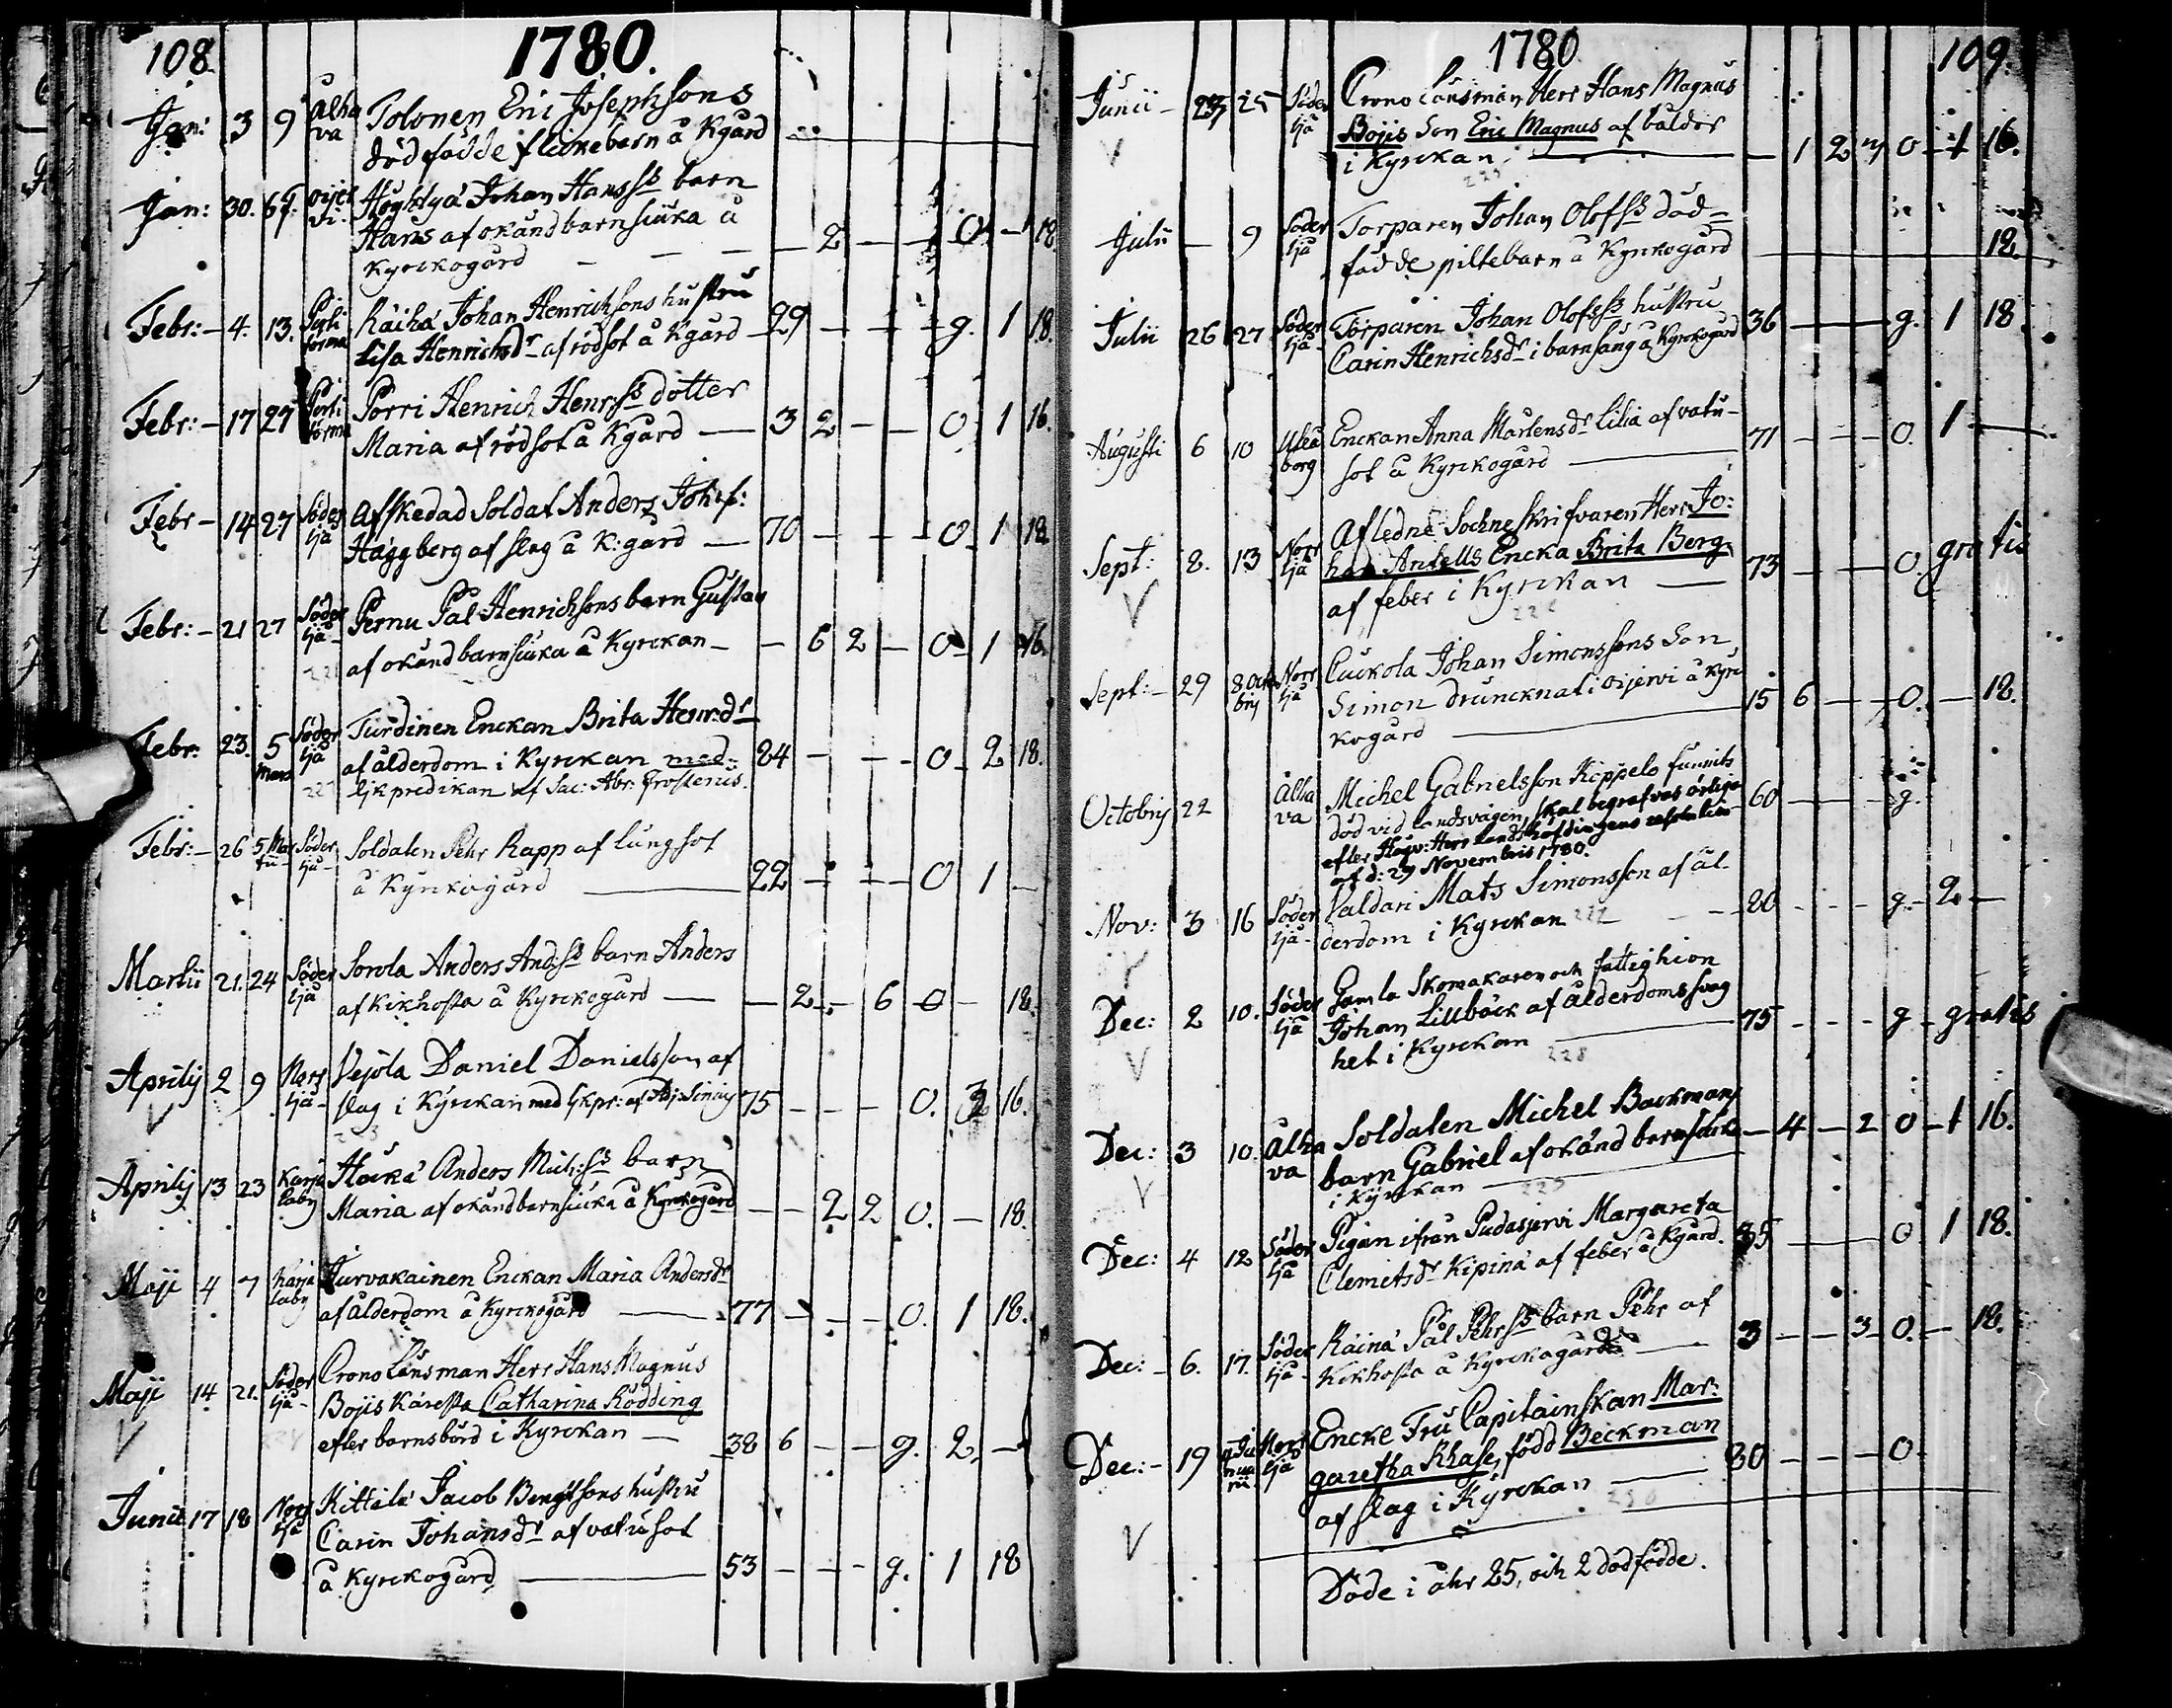 108
1780.
Jan: 3 9 Alha Tolonen Eric Josephsons
va dödfödde flickebarn å Kgård
Jan: 30. oijer Johan Hanss:s barn
vi. Hans af okänd barnsiuka å
Kyrckogård — — — 2 — — 0. — 18.
Febr: — 4. 13. Räihä Johan Henrichsons hustru
Lisa Henrichsdr af rödsot å Kgård — 29 — — — g. 1 18.
Febr: — 17 27 Porri Henrich Henrss:s dotter
Maria af rödsot å Kgård — 3 2 — — 0 1 16.
Febr — 14 27 Söder Afskedad Soldat Anders Joh:s:
ljå Häggberg af slag å K:gård — 70 — — — 0 1 18
Febr: — 21 27 Söder Pernu Pål Henrichsons barn Gustav
ljå — af okänd barnsiuka å Kyrckan — — 6 2 — 0 1 16.
Febr: 23. 5 Söder Turdinen Enckan Brita Henr:dr
Mars ljå af ålderdom i Kyrckan med 84 — — — 0 2 18.
227 ljkpredikan af Sac: Abr: Frosterus.
Febr: — 26 5 Mar Söder Soldaten Pehr Rapp af lungsot
tii — ljå — å Kyrckogård — 22 — — — 0 1 —
Martii 21. 24 Söder Sorola Anders And:ss barn Anders
ljå af Kikhosta å Kyrckogård — — 2 — 6 0 — 18.
Aprilij 2 9 Norr Vejola Daniel Danielsson af
ljå — slag i Kyrckan med Ljkpr: af Adj: 75 — — — 0. 16.
Aprilij 13 23 Karja Anders Mich:ss barn
laby Maria af okänd barnsiuka å Kyrckogård — — 2 2 0. — 18.
Maji 4 7 Karja Turvakainen Enckan Maria Andersdr
laby af ålderdom å Kyrckogård — 77 — — — 0. 1 18.
Maji 14 21. Söder Crono Länsman Herr Hans Magnus
ljå — Bojis Käresta Catharina Rödding
efter barnsbörd i Kyrckan — 38 6 — — g. 2. —
Junii 17 18 Norr Kittilä Jacob Bengtsons hustru
ljå Carin Johansdr af vatusot
å Kyrckogård — 53 — — — g. 1 18
1780
109.
Junii — 23 25 Söder Crono Länsman Herr Hans Magnus
ljå Bojis Son Eric Magnus af bålder
i Kyrckan — — 1 2 7 0 — 1 16.
Julii — 9 Söder Torparen Johan Olofss död=
ljå födde piltebarn å Kyrckogård 18.
Julii 26 27 Söder Torparen Johan Olofss:s hustru
ljå — Carin Henrichsdr i barnsäng å Kyrckogård 36 — g. 1 18.
Augusti 6 10 Ulea Enckan Anna Mårtensdr Lilia af vatu-
borg sot å Kyrckogård — 71 — — — 0. 1 —
Sept: 8. 13 Norr Afledne Sockneskrifvaren Herr Jo:
ljå han Antells Encka Brita Berg,
af feber i Kyrckan — 73 — — 0. gratis
Sept: — 29 8 Octo Norr Cuckola Johan Simonssons Son
brij ljå Simon druncknat i oijervi å Kyrc
kogård — 15 6 — — 0. — 18.
Octobrij 22 Alha Michel Gabrielsson Köppelö funnits
va död vid landsvägen, skal begrafvas ärliga 60 — — — g.
efter Högv: Herr Landshöfdingens resolution
af d: 27 Novembris 1780.
Nov: 3 16 Söder Valdari Mats Simonsson af ål-
ljå — derdom i Kyrckan — — 80 — — — g. 2. —
Dec: 2 10. Söder Gamla Skomakaren och fattighion
ljå Johan Lillbäck af ålderdomssvag
het i Kyrckan 228 — 75 — — — g — gratis
Dec: 3 10. Alha Soldaten Michel Backmans
va barn Gabriel af okänd barnsiuka — 4 — 2 0 — 1 16.
i Kyrckan —
Dec: 4 12 Söder Pigan ifrån Pudasjervi Margareta
ljå Clemetsdr Kipinä af feber å Kgård. 35 — 0. 1 18.
Dec: — 6. 17. Söder Räinä Pål Pehrss:s barn Pehr af
ljå — Kikhosta å Kyrckogård — 3 — — 3 0. — 18.
Dec: — 19 Norr Encke Fru Capitainskan Mar:
ljå garetha Rhase, född Beckman 80 — — — 0.
af slag i Kyrckan —
Döde i åhr 25, och 2 dödfödde.